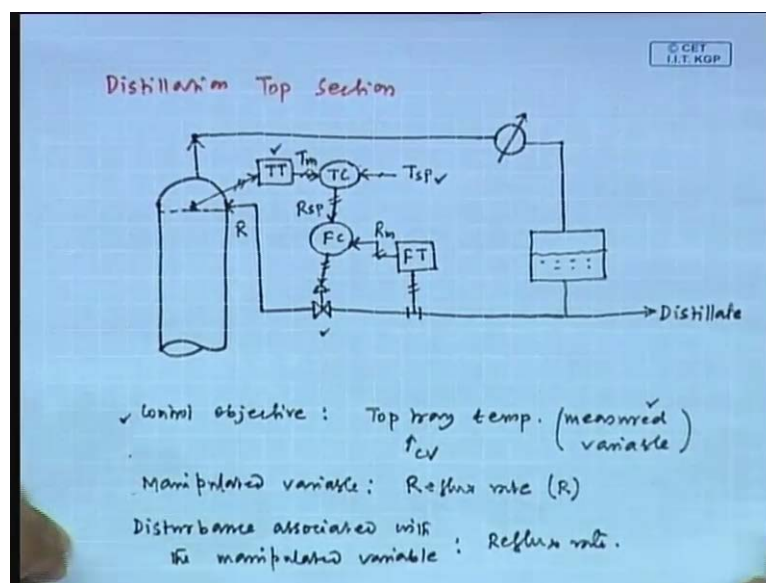 © CET
I.I.T. KGP
Distillation Top Section
TT
Tm
TC
Tsp
Rsp
R
FC
Rm
FT
Distillate
Control objective : Top tray temp. (measured variable)
CV
Manipulated variable : Reflux rate (R)
Disturbance associated with
the manipulated variable : Reflux rate.